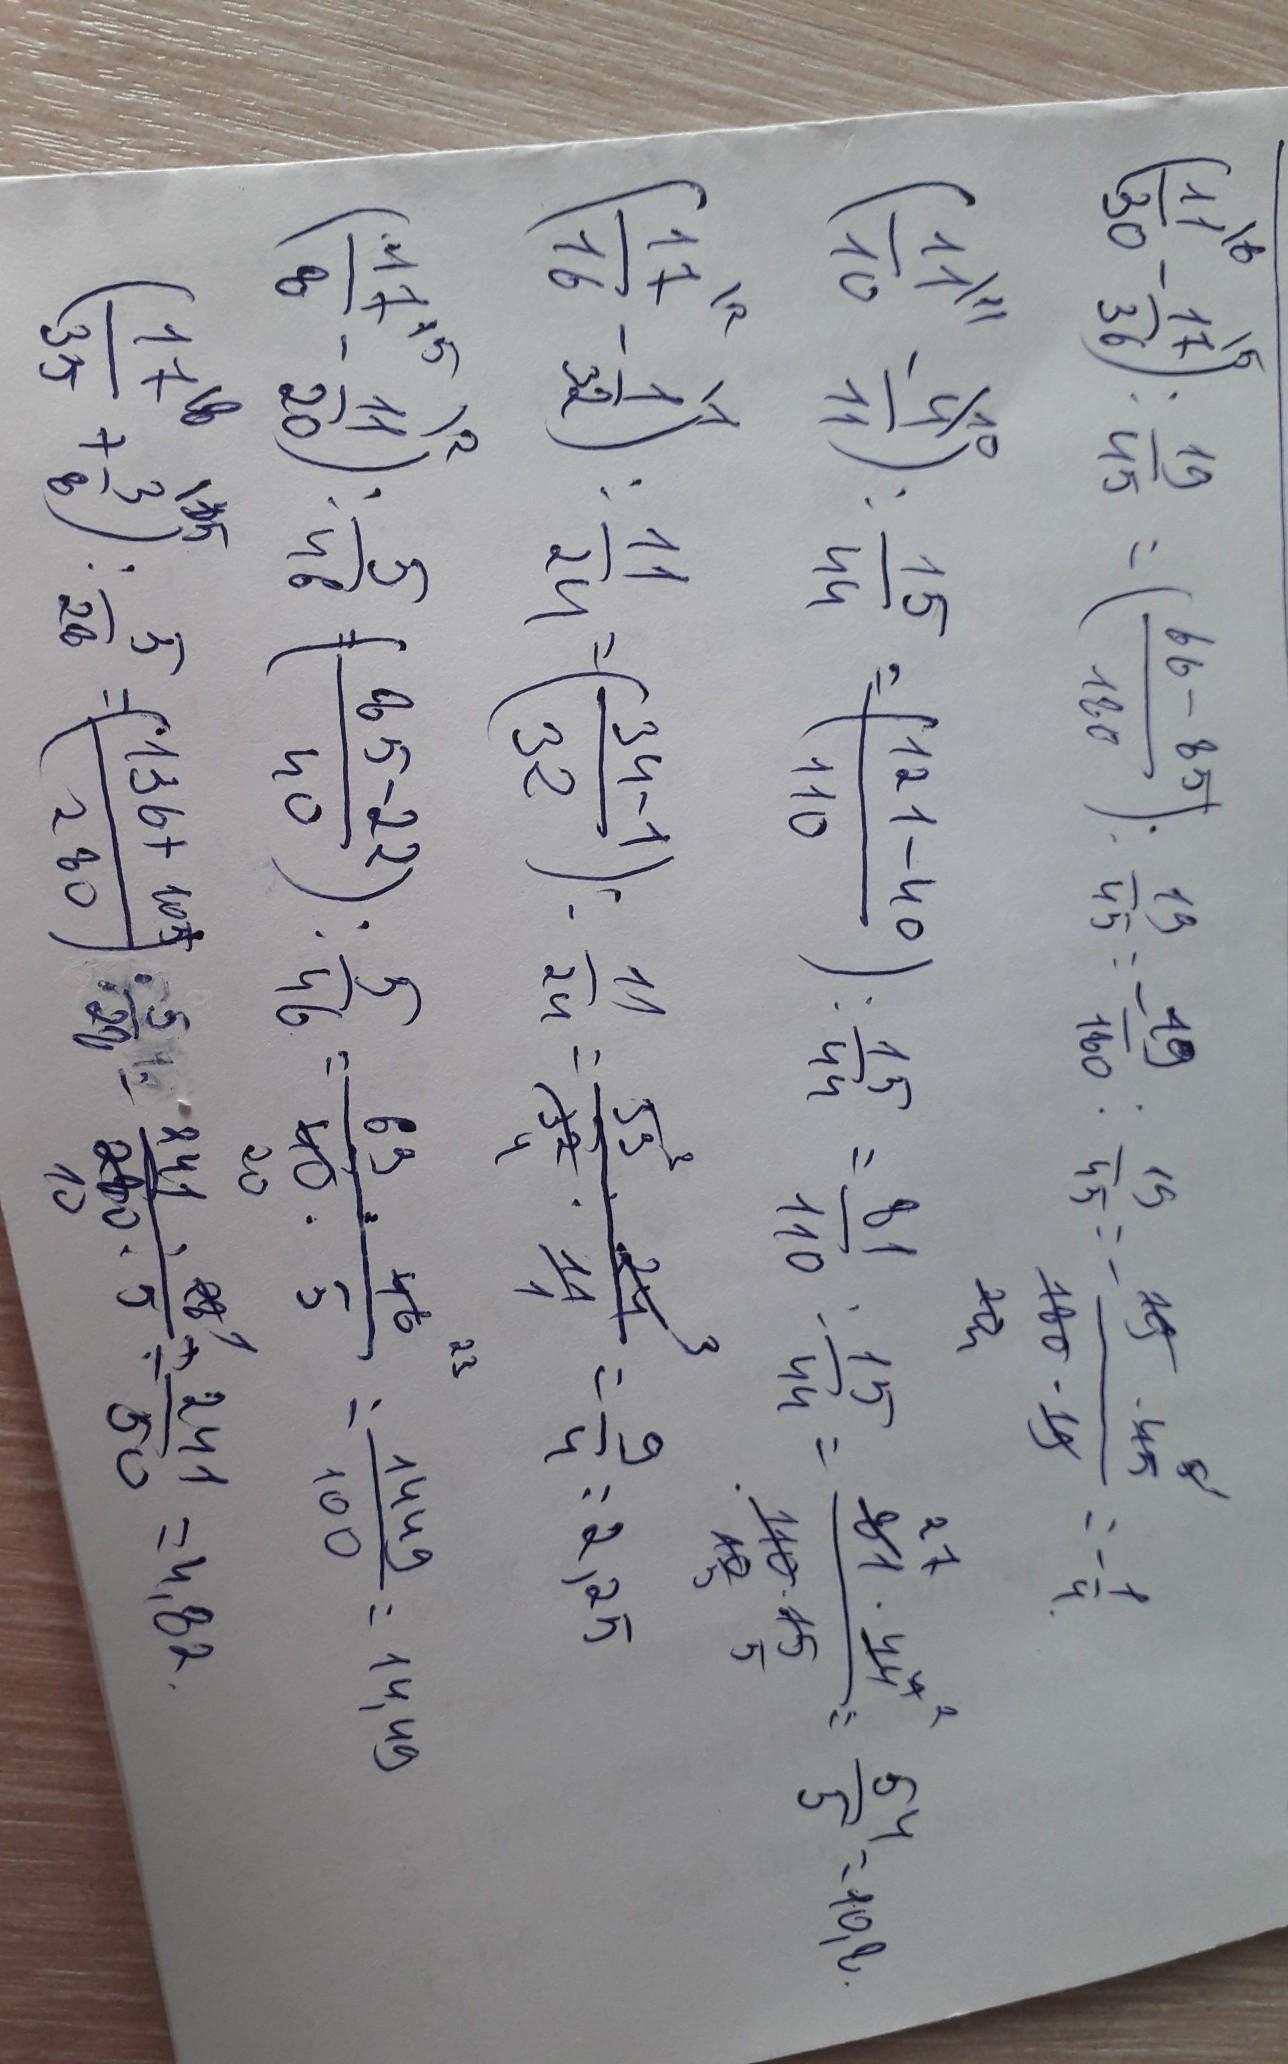 (11/30 \6 - 17/36 \5) : 19/45 = (66-85/180) : 19/45 = -19/180 : 19/45 = - 19 · 45/180 · 19 = -1/4.
(11/10 \11 - 4/11 \10) : 15/44 = (121-40/110) : 15/44 = 81/110 : 15/44 = 81 · 44/110 · 15 = 54/5 = 10,8.
(17/16 \2 - 1/32 \1) : 11/24 = (34-1/32) : 11/24 = 33 · 24/32 · 11 = 9/4 = 2,25
(17/8 \5 - 11/20 \2) : 5/46 = (85-22/40) : 5/46 = 63 · 46/40 · 5 = 1449/100 = 14,49
(17/35 \8 + 3/8 \35) : 5/28 = (136+105/280) : 5/28 = 241 · 28/280 · 5 = 241/50 = 4,82.